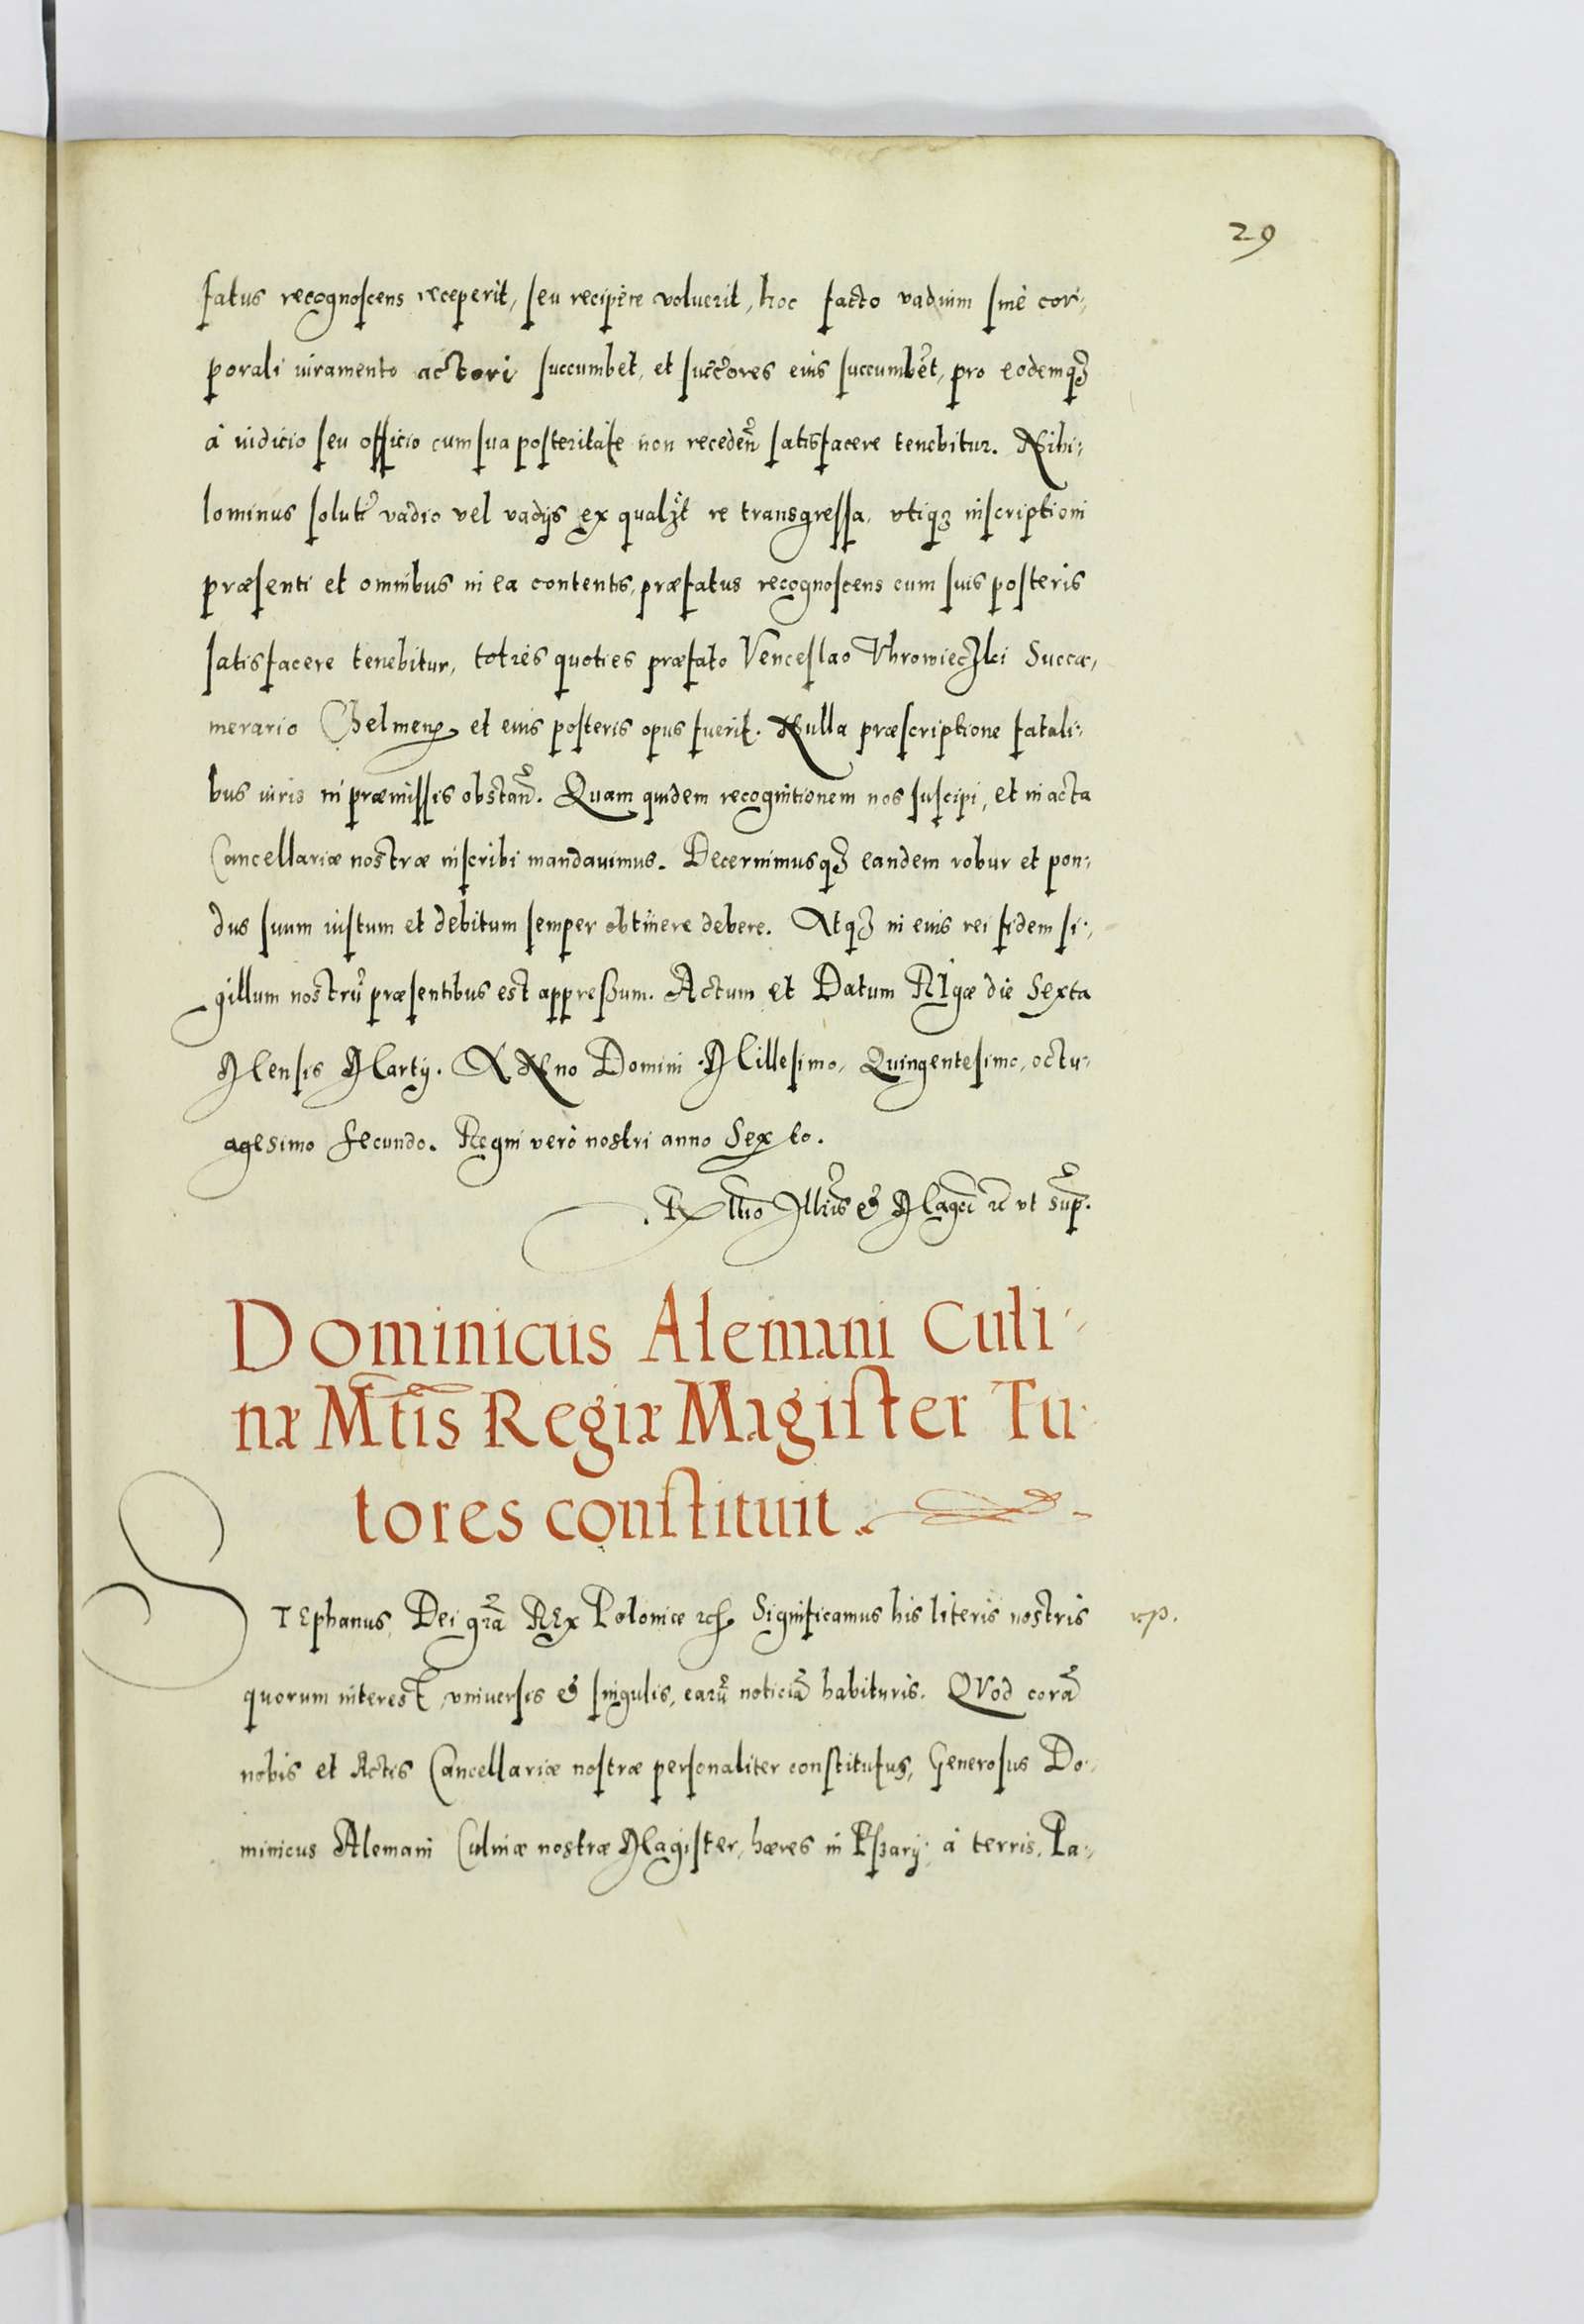 29
fatus recognoscens receperit, seu recipere voluerit, hoc facto vadium sine cor,
porali iuramento actori succumbet, et succ̃ores eius succumbẽt, pro eodemqȝ
à iudicio seu officio cum sua posteritate non recedeñ satisfacere tenebitur. Nihi,
lominus solutẽ vadio vel vadijs ex qualȝt re transgressa, vtiqȝ inscriptioni
præsenti et omnibus in ea contentis, præfatus recognoscens cum suis posteris
satisfacere tenebitur, toties quoties præfato Venceslao Vhrowieczki Succa,
merario Chelmeñ et eius posteris opus fuerit. Nulla præscriptione fatali,
bus iuris in præmissis obstañ. Quam quidem recognitionem nos suscipi, et in acta
Cancellariæ nostræ inscribi mandauimus. Decernimusqȝ eandem robur et pon,
dus suum iustum et debitum semper obtinere debere. Atqȝ in eius rei fidem si,
gillum nostrũ præsentibus est appressum. Actum et Datum Rigæ die Sexta
Mensis Martij. ANno Domini Millesimo, Quingentesimo, octu,
agesimo secundo. Regni verò nostri anno Sexto.
Rtio Illris & Magci ꝛc vt sup.
Dominicus Alemani Culi,
næ Mtis Regiæ Magister Tu,
tores constituit.
STEphanus, Dei grã REx Poloniæ ꝛc Significamus his literis nostris
quorum interest, vniuersis & singulis, earũ noticiã habituris. QVod corã
nobis et Actis Cancellariæ nostræ personaliter constitutus, Generosus Do,
minicus Alemani Culinæ nostræ Magister, hæres in Pszary, à terris, Pa,